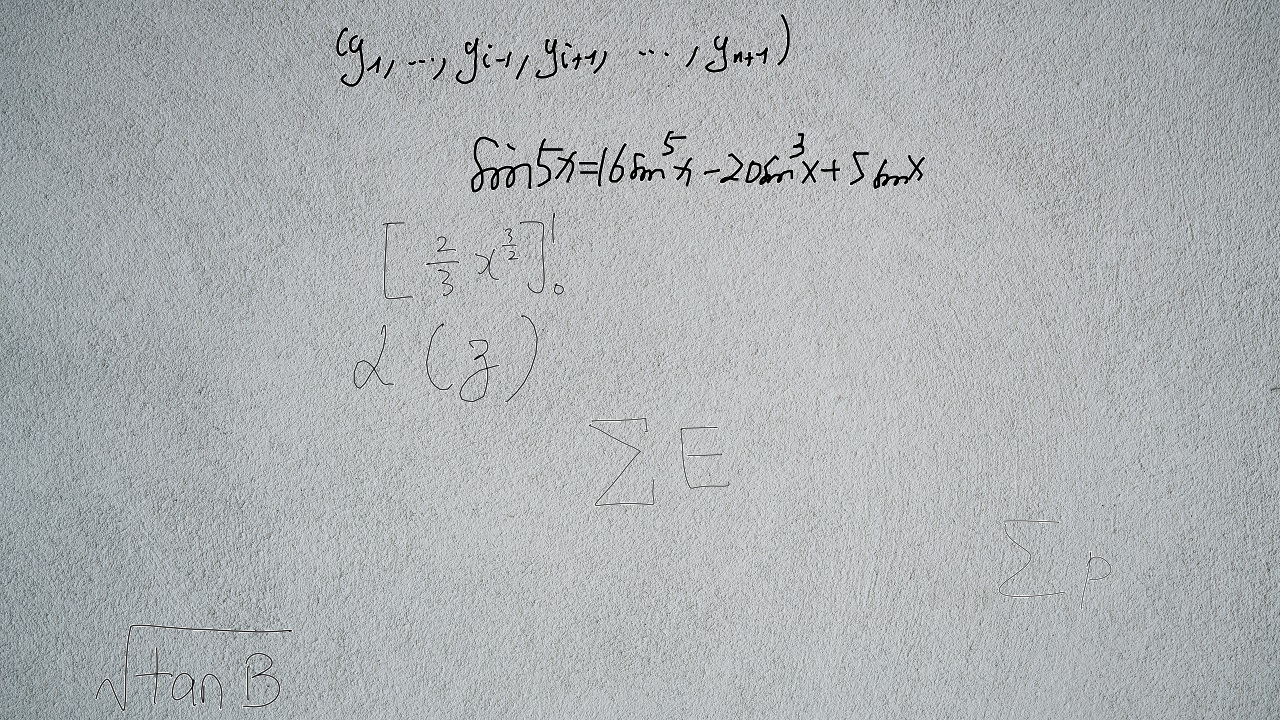 (y₁, ..., y_{i-1}, y_{i+1}, ..., y_{n+1})
sin5x=16sin⁵x-20sin³x+5sinx
[\frac{2}{3} x^{\frac{3}{2}}]_0^1
α(z)
∑E
∑p
\sqrt{tan B}